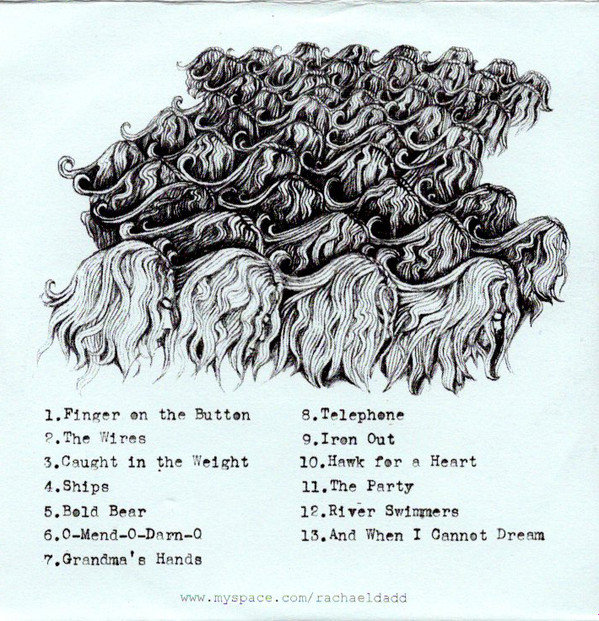 1.Finger on the Button
2.The Wires
3.Caught in the Weight
4.Ships
5.Bold Bear
6.O-Mend-O-Darn-O
7.Grandma's Hands
8.Telephone
9.Iron Out
10.Hawk for a Heart
11.The Party
12.River Swimmers
13.And When I Cannot Dream
www.myspace.com/rachaeldadd